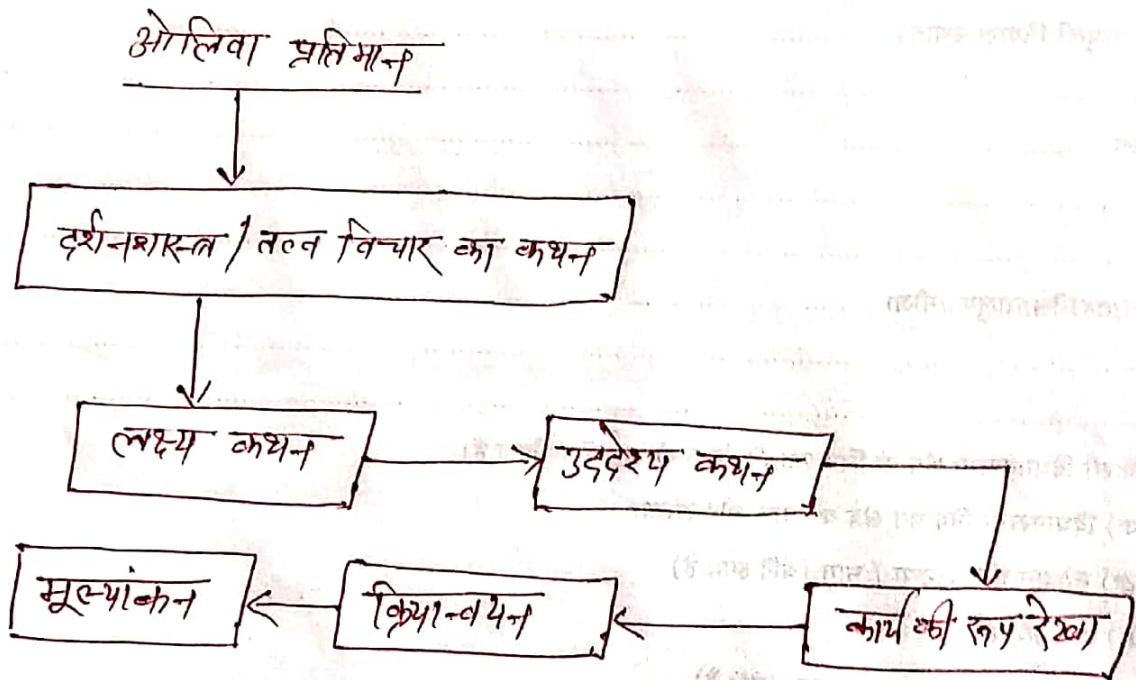 ओलिवा प्रतिमान
दर्शनशास्त्र / तत्व विचार का कथन
लक्ष्य कथन
उद्देश्य कथन
कार्य की रूप रेखा
क्रियान्वयन
मूल्यांकन